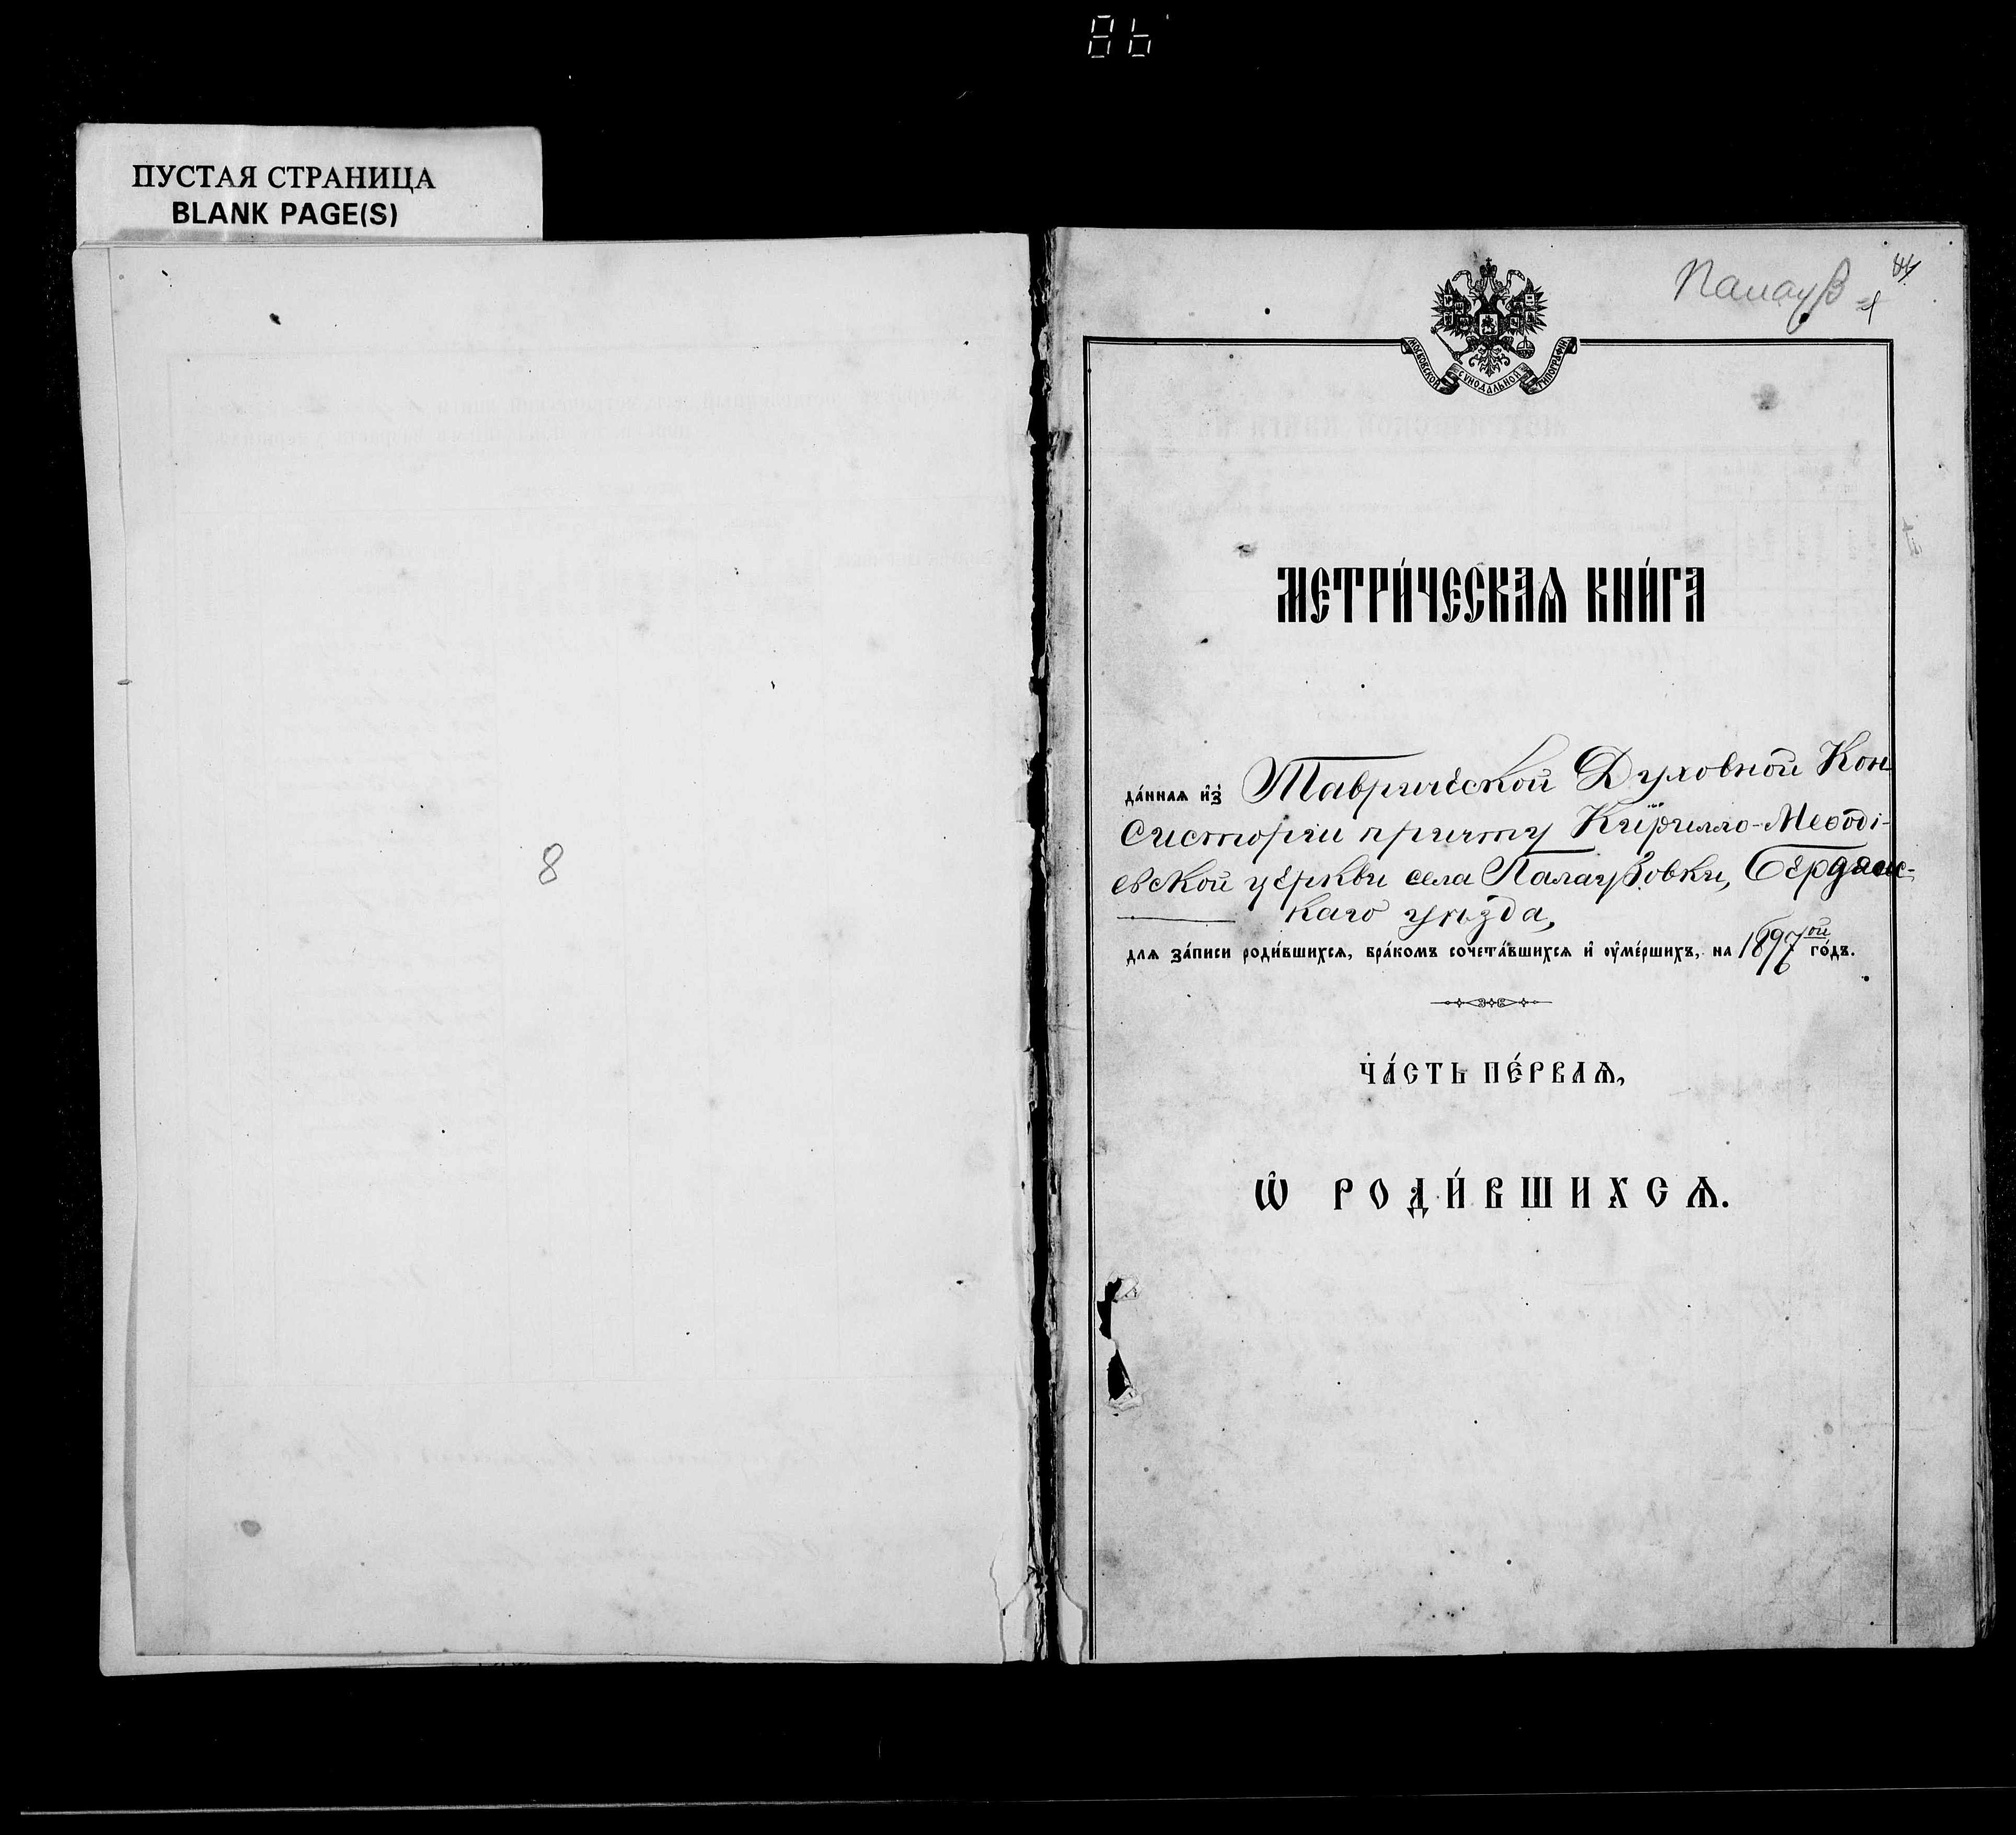 86
ПУСТАЯ СТРАНИЦА
BLANK PAGE(S)
8
Палауз
МОСКОВСКОЙ СѴНОДАЛЬНОЙ ТИПОГРАФІИ
МЕТРИ́ЧЕСКАѦ КНИ́ГА
да́ннаѧ и҆з̾ Таврической Духовной Кон
систоріи причту Кирилло-Меѳоді-
евской церкви села Палаузовки, Бердянс-
каго уѣзда,
длѧ за́писи роди́вшихсѧ, бра́комъ сочета́вшихсѧ и҆ ѹ҆ме́ршихъ, на 1897ой го́дъ.
ЧА́СТЬ ПЕ́РВАѦ,
Ѡ҆ РОДИ́ВШИХСѦ.